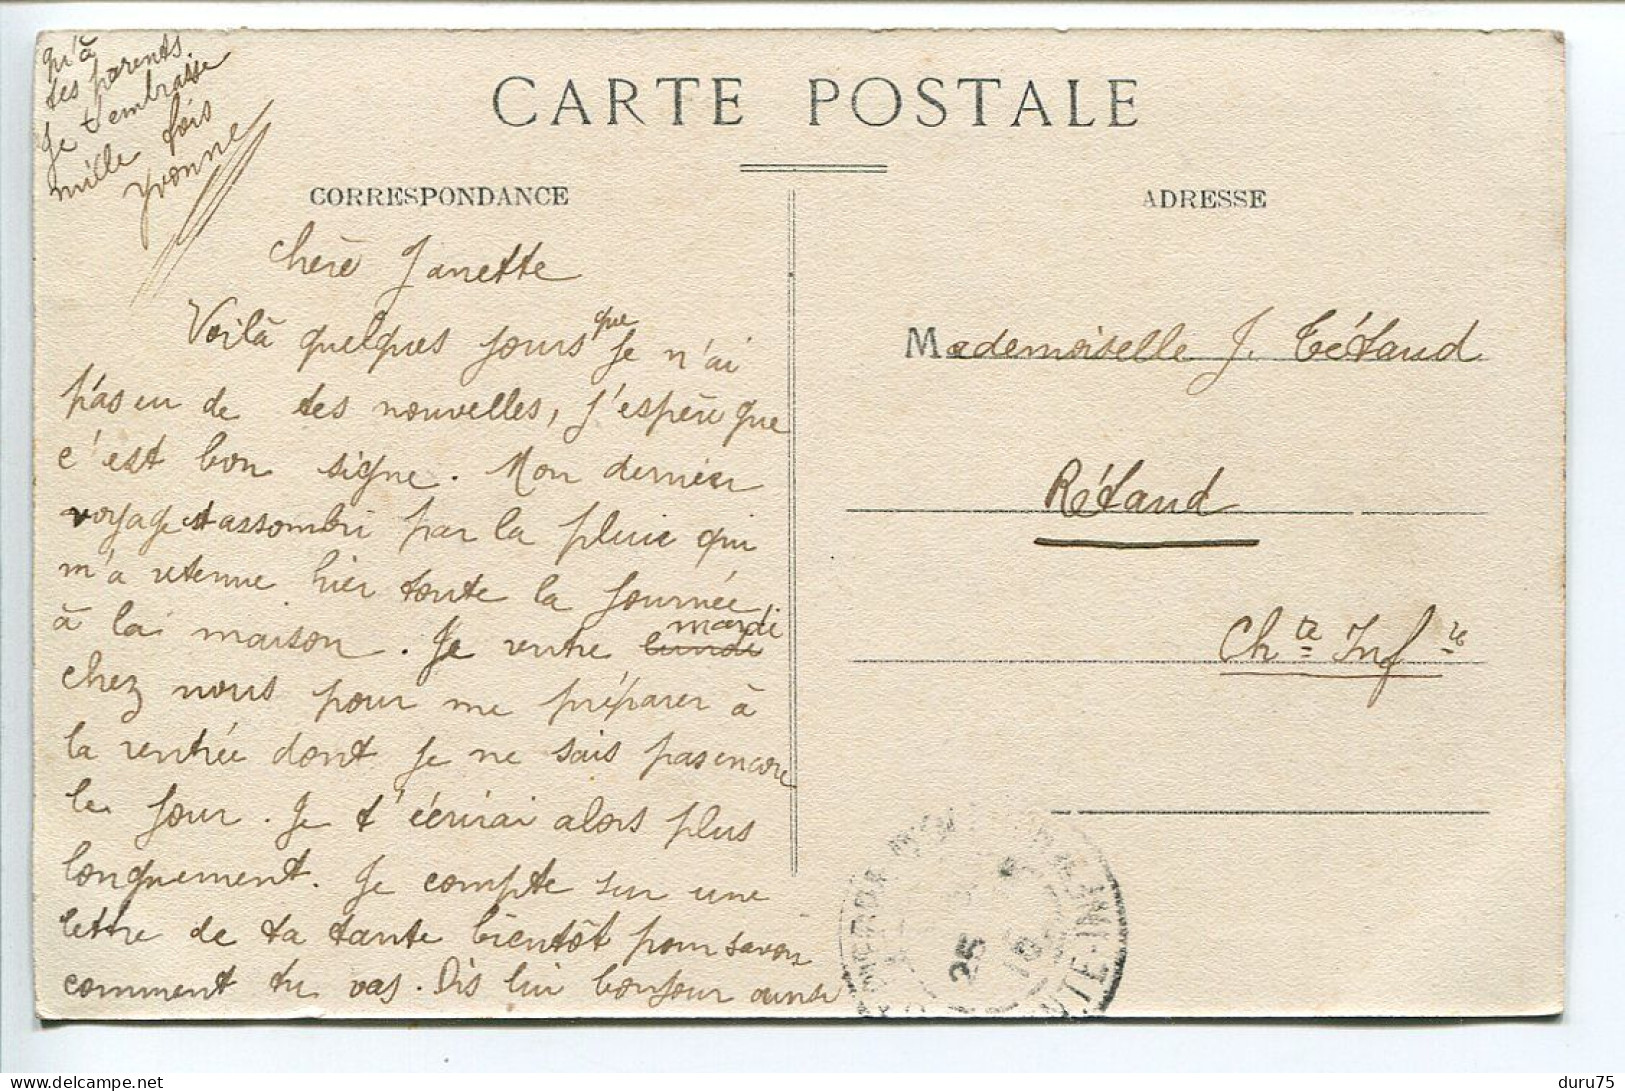 CARTE POSTALE
CORRESPONDANCE
chère Janette
Voilà quelques jours que je n'ai
pas eu de tes nouvelles, j'espère que
c'est bon signe. Mon dernier
voyage st assombri par la pluie qui
m'a retenue hier toute la journée
à la maison. Je rentre lundi mardi
chez nous pour me préparer à
la rentrée dont je ne sais pas encore
le jour. Je t'écrirai alors plus
longuement. Je compte sur une
lettre de ta tante bientôt pour savoir
comment tu vas. Dis lui bonjour ainsi
qu'à
tes parents
Je t'embrasse
mille fois
Yvonne
ADRESSE
Mademoiselle J. Tétaud
Rétaud
Chte Infre
25
TE-INF
duru75